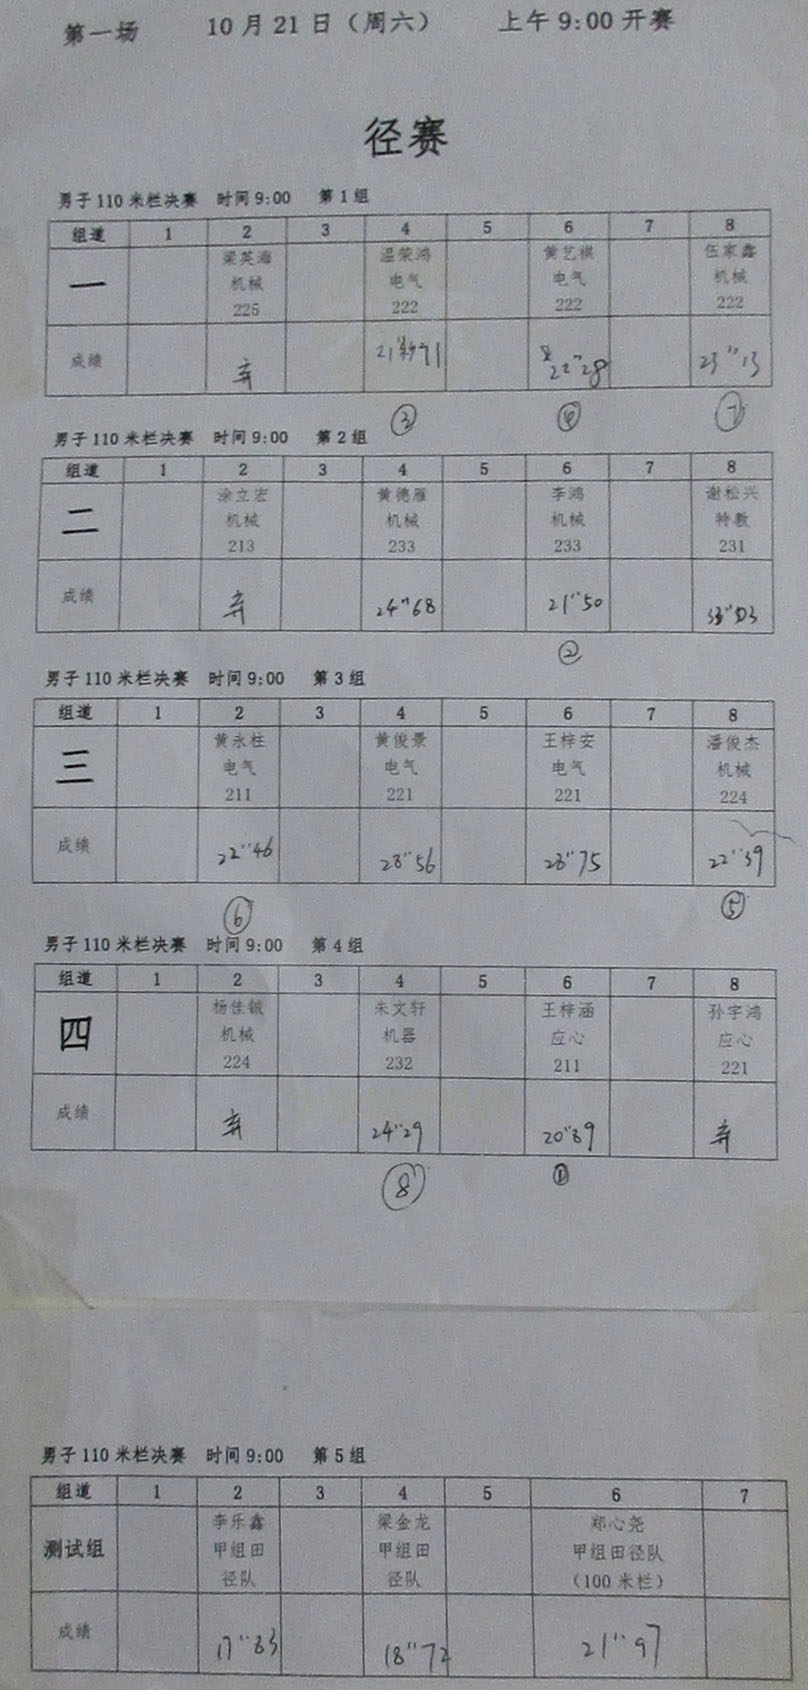 第一场 10月21日（周六） 上午9:00开赛
径赛
男子110米栏决赛 时间9:00 第1组
组道 1 2 3 4 5 6 7 8
一 梁英海 温荣鸿 黄艺棋 伍家鑫
机械 电气 电气 机械
225 222 222 222
成绩 弃 21"71 22"28 23"13
③ ④ ⑦
男子110米栏决赛 时间9:00 第2组
组道 1 2 3 4 5 6 7 8
二 涂立宏 黄德雁 李鸿 谢松兴
机械 机械 机械 特教
213 233 233 231
成绩 弃 24"68 21"50
②
男子110米栏决赛 时间9:00 第3组
组道 1 2 3 4 5 6 7 8
三 黄永柱 黄俊景 王梓安 潘俊杰
机械 
电气 电气 电气 机械
211 221 221 224
成绩 22"46 23"56 23"75 22"39
⑥ ⑤
男子110米栏决赛 时间9:00 第4组
组道 1 2 3 4 5 6 7 8
四 杨佳铖 朱文轩 王梓涵 孙宇鸿
机械 机器 应心 应心
224 232 211 221
成绩 弃 24"29 20"89 弃
⑧ ①
男子110米栏决赛 时间9:00 第5组
组道 1 2 3 4 5 6 7
测试组 李乐鑫 梁金龙 郑心尧
甲组田 甲组田 甲组田径队
径队 径队 （100米栏）
成绩 17"83 18"72 21"97